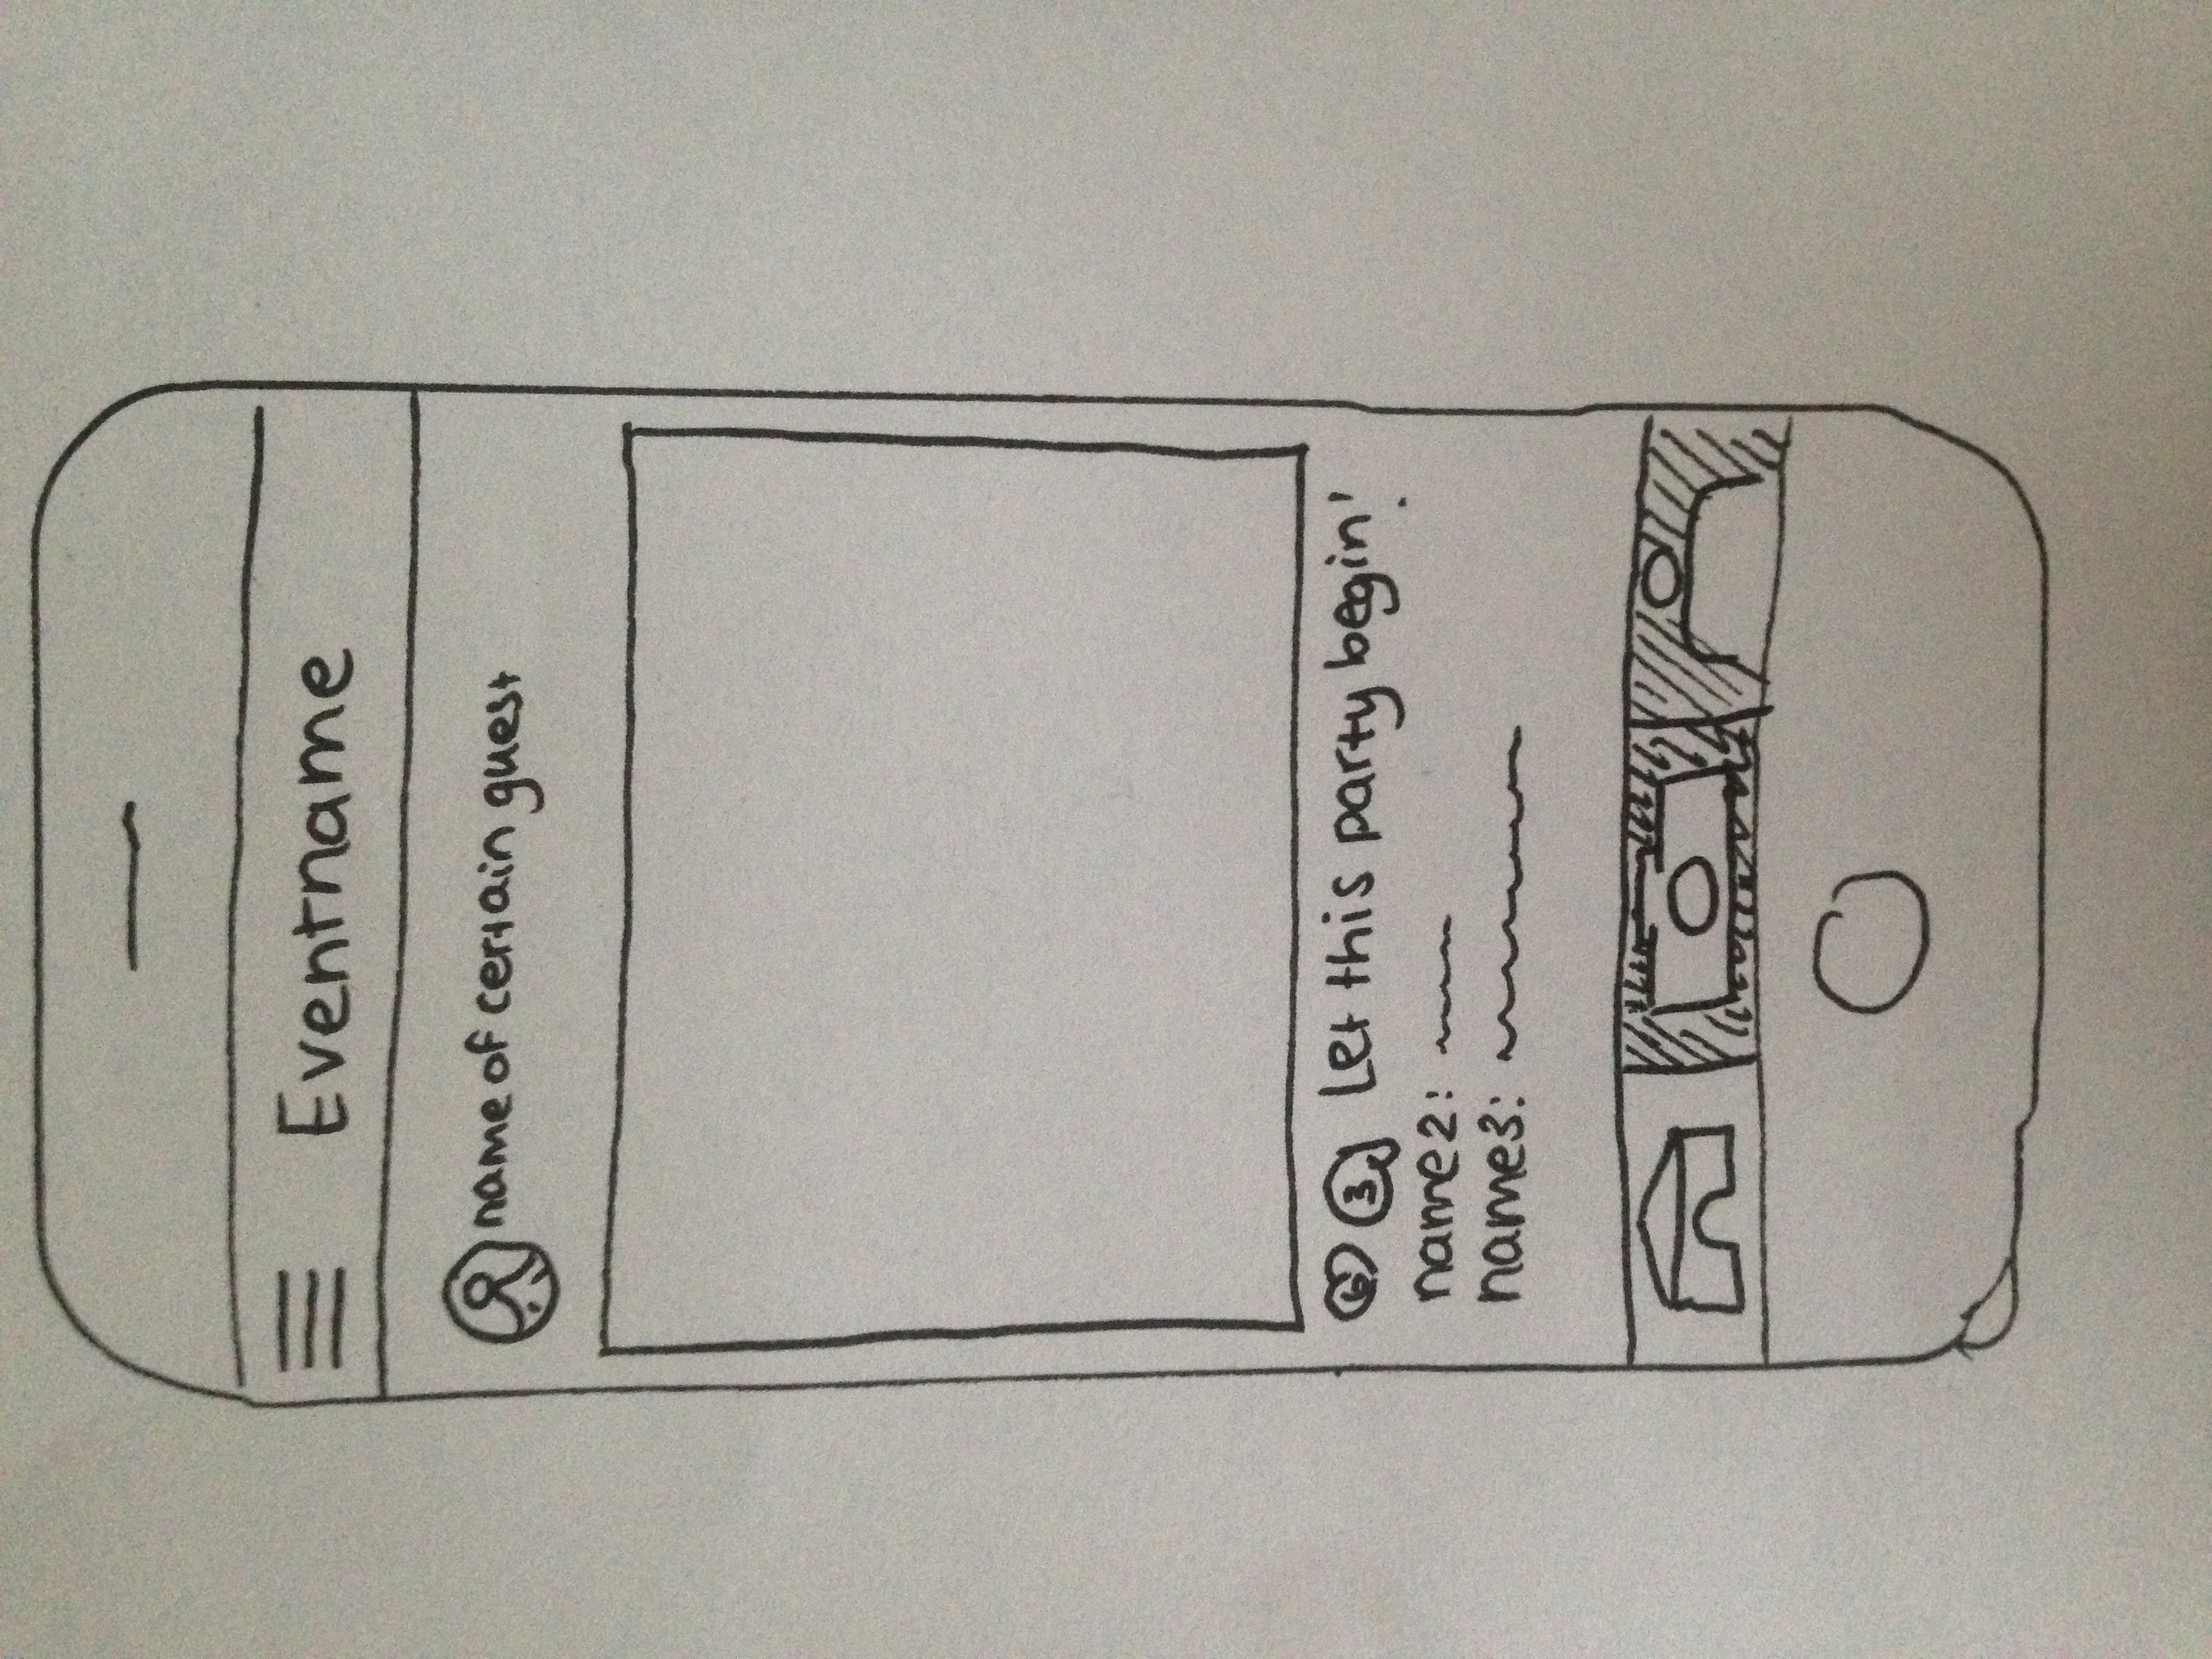 Eventname
name of certain guest
6 3 Let this party begin!
name2:
name3: